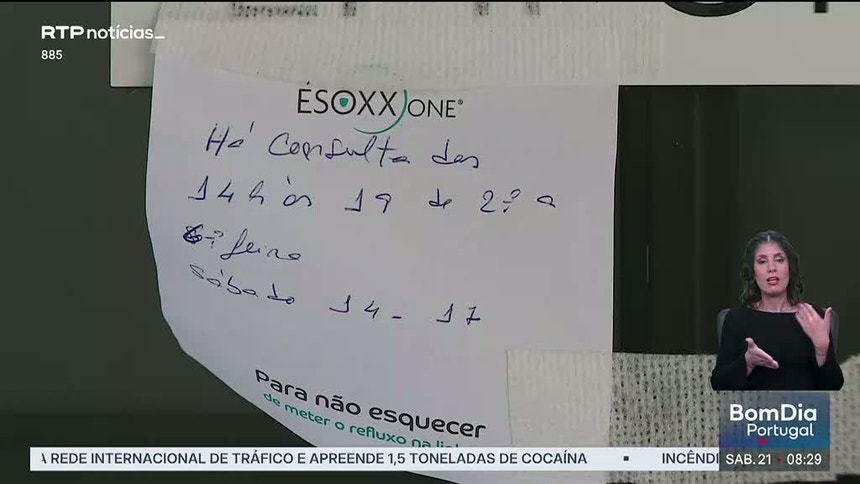 RTP notícias_
885
ÉSOXX ONE®
Há Consulta das
14h às 19 de 2ª a
6ª feira
sábado 14 - 17
Para não esquecer
de meter o refluxo na
A REDE INTERNACIONAL DE TRÁFICO E APREENDE 1,5 TONELADAS DE COCAÍNA ▪ INCÊNDI
BomDia
Portugal
SÁB. 21 08:29